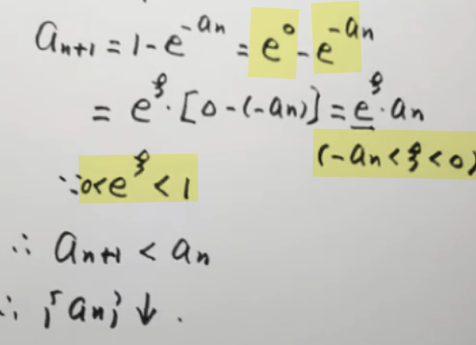 a_{n+1} = 1 - e^{-a_n} = e^0 - e^{-a_n}
= e^ξ · [0 - (-a_n)] = e^ξ · a_n
(-a_n < ξ < 0)
∵ 0 < e^ξ < 1
∴ a_{n+1} < a_n
∴ {a_n} ↓ .